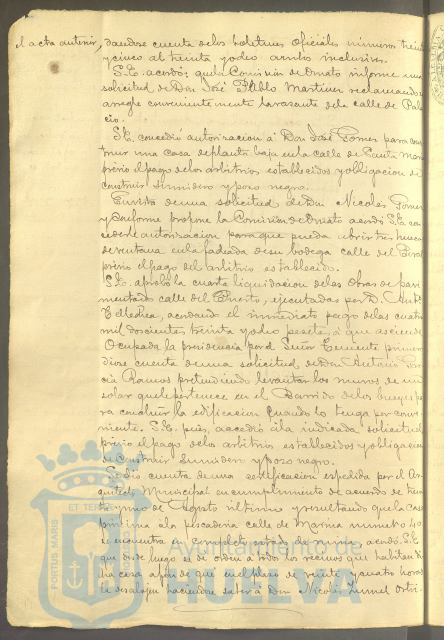 el acta anterior, dandose cuenta delos boletines oficiales numeros treinta
y cinco al treinta y ocho ambos inclusives.
S.E. acordó: quela Comision de Ornato informe una
solicitud de Don José Pablo Martinez reclamando
arregle convenientemente la rasante dela calle de Pala-
cio.
S.E. concedió autorizacion á Don José Gomez para cons-
truir una casa deplanta baja enla calle de Santa Maria
previo el pago delos arbitrios establecidos y obligacion de
construir sumidero y pozo negro.
En vista de una solicitud de Don Nicolas Gomez
y conforme propone la Comision de Ornato acordó S.E. con-
cederle autorizacion para que pueda abrir tres huecos
de ventana enla fachada de su bodega calle del
previo el pago del arbitrio establecido.
S.E. aprobó la cuarta liquidacion delas obras de pavi-
mentado calle del Puerto, ejecutadas por D. Antº
acordando el inmediato pago delas cuatro
mil doscientas treinta y ocho pesetas, á que asciende.
Ocupada la presidencia por el Señor Teniente primero
diose cuenta de una solicitud de Don Antonio Gar-
cia Ramos pretendiendo levantar los muros de un
solar quele pertenece en el Barrido de los bueyes pa-
ra concluir la edificacion cuando lo tenga por conve-
niente. S.E. pues, accedió á la indicada solicitud
previo el pago delos arbitrios establecidos y obligacion
de construir sumidero y pozo negro.
Se dió cuenta de una certificacion expedida por el Ar-
quitecto Municipal en cumplimiento de acuerdo de trein-
ta y uno de Agosto ultimo y resultando quela casa
proxima ála pescaderia calle de Marina numero 40
se encuentra en completo estado de ruina, acordó S.E.
que desde luego se de orden á todos los vecinos que habitan di-
cha casa afin de que enel plazo de veinte y cuatro horas
la desalojen haciendose saber á Don Nicolas Ortiz
PORTUS MARIS
ET TERRE
Ayuntamiento de
HUELVA